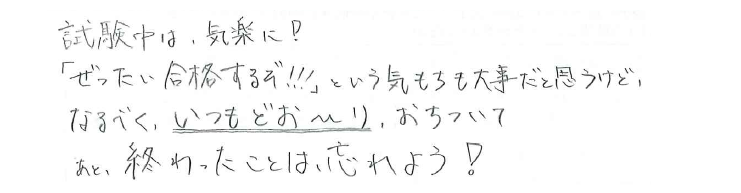 試験中は、気楽に!
「ぜったい合格するぞ!!!」という気もちも大事だと思うけど、
なるべく、いつもどお〜り、おちついて
あと、終わったことは、忘れよう!